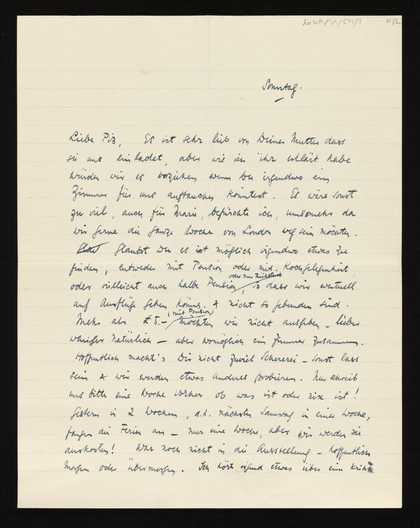 Sonntag.
Liebe Piz, Es ist sehr lieb von Deiner Mutter dass
sie uns einladet, aber wie ich ihr erklärt habe
würden wir es vorziehen wenn Du irgendwo ein
Zimmer für uns auftauchen könntest. Es wäre sonst
zu viel, auch für Maria, befürchte ich, umsomehr da
wir gerne die ganze Woche von London weg sein möchten.
Glaubst Du es ist möglich irgendwo etwas zu
finden, entweder mit Pension oder mit Kochgelegenheit
oder vielleicht auch halbe Pension, so dass wir eventuell
auf Ausflüge gehen können & nicht so gebunden sind.
mit Pension
Mehr als £5.- möchten wir nicht ausgeben – lieber
weniger natürlich – aber womöglich ein Zimmer zusammen.
Hoffentlich macht's Dir nicht zuviel Schererei – sonst lass
sein & wir werden etwas anderes probieren. Nur schreib
uns bitte eine Woche vorher ob was ist oder nix ist!
in 2 Wochen, d.h. nächsten Samstag in einer Woche,
fangen die Ferien an – nur eine Woche, aber wir werden sie
auskosten! War noch nicht in der Ausstellung – hoffentlich
morgen oder übermorgen. Ich hört irgend etwas über ein